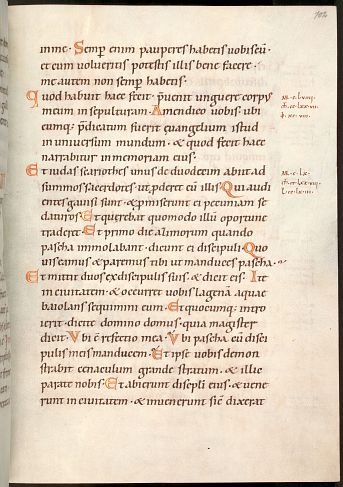 in me. Semp enim pauperes habetis uobiscū.
et cum uolueritis potestis illis bene facere.
me autem non semp habetis.
Quod habuit haec fecit. p̄uenit unguere corpus
meum in sepulturam. Amen dico uobis. ubi
cumq; p̄dicatum fuerit euangelium istud
in uniuersum mundum. & quod fecit haec
narrabitur in memoriam eius.
Et iudas scariothes unus de duodecim abiit ad
summos sacerdotes. ut pderet eū illis. Qui audi
entes gauisi sunt. & pmiserunt ei pecuniam se
daturos. Et querebat quomodo illū oportune
traderet. Et primo die azimorum quando
pascha immolabant. dicunt ei discipuli. Quo
uis eamus & paremus tibi ut manduces pascha.
Et mittit duos ex discipulis suis. & dicit eis. Ite
in ciuitatem. & occurret uobis lagenā aquae
baiolans sequimini eum. Et quocumq; intro
ierit. dicite domino domus. quia magister
dicit. Vbi ē refectio mea. Vbi pascha cū disci
pulis meis manducem. Et ipse uobis demon
strabit cenaculum grande stratum. & illic
parate nobis. Et abierunt discipli eius. & uene
runt in ciuitatem. & inuenerunt sic̄ dixerat